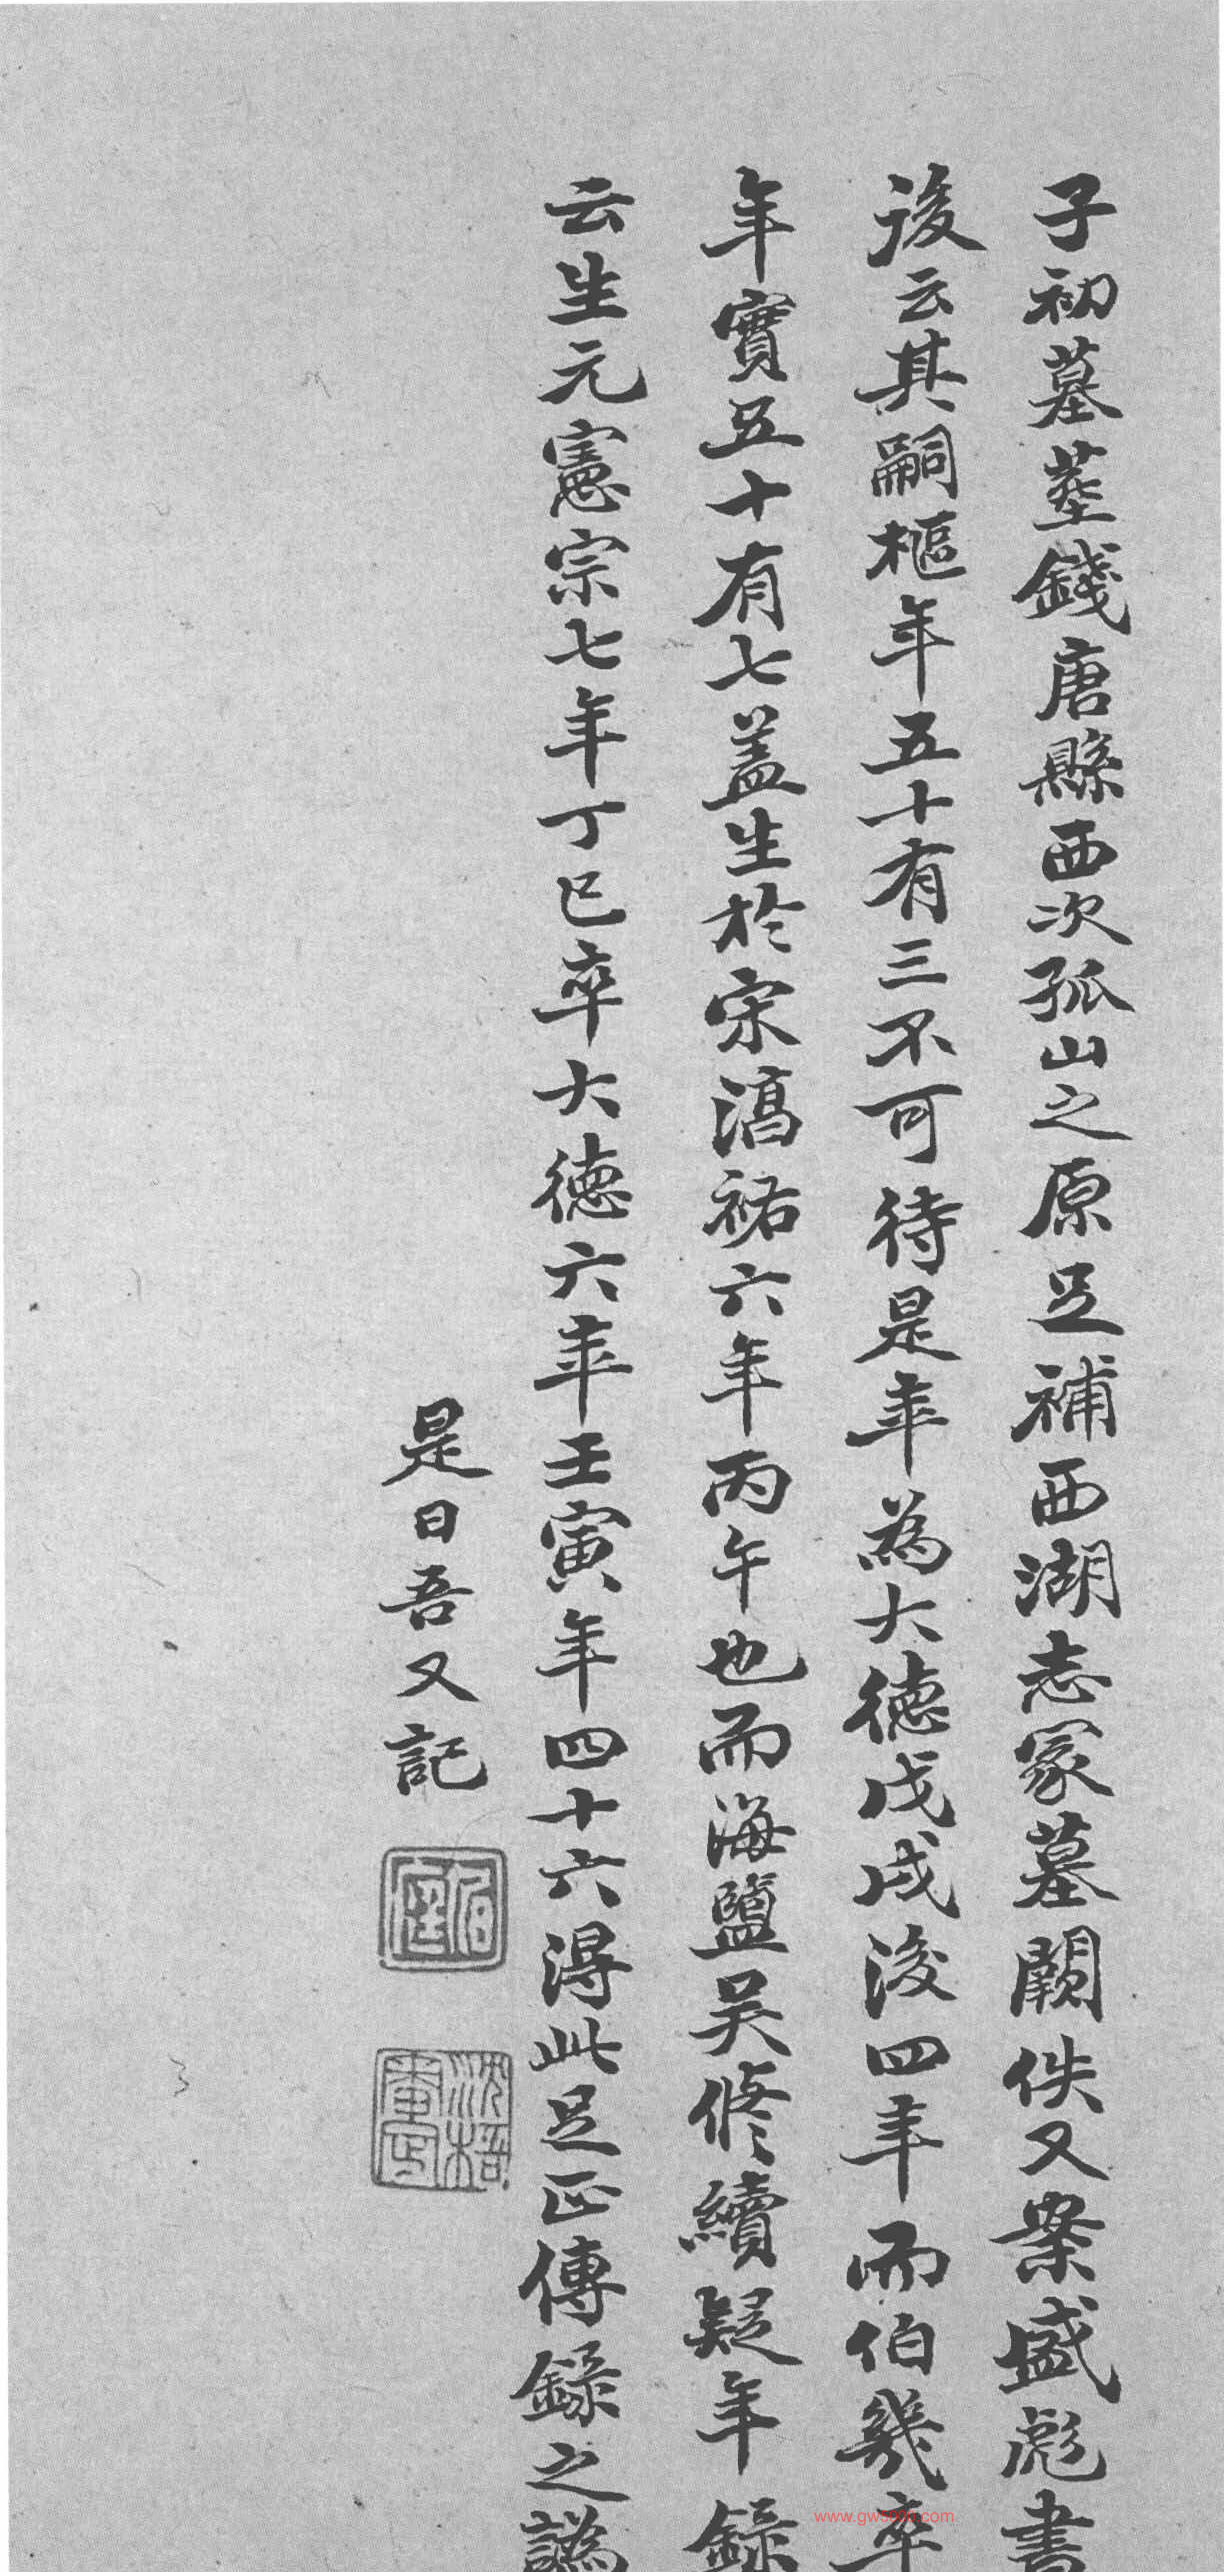 子初墓塟錢唐縣西次孤山之原足補西湖志冢墓闕佚又案盛彪書
後云其嗣樞年五十有三不可待是年為大德戊戌後四年而伯幾卒
年實五十有七蓋生於宋湻祐六年丙午也而海鹽吳修續疑年錄
云生元憲宗七年丁巳卒大德六年壬寅年四十六得此足正傳錄之譌
是日吾又記
www.gw500n.com